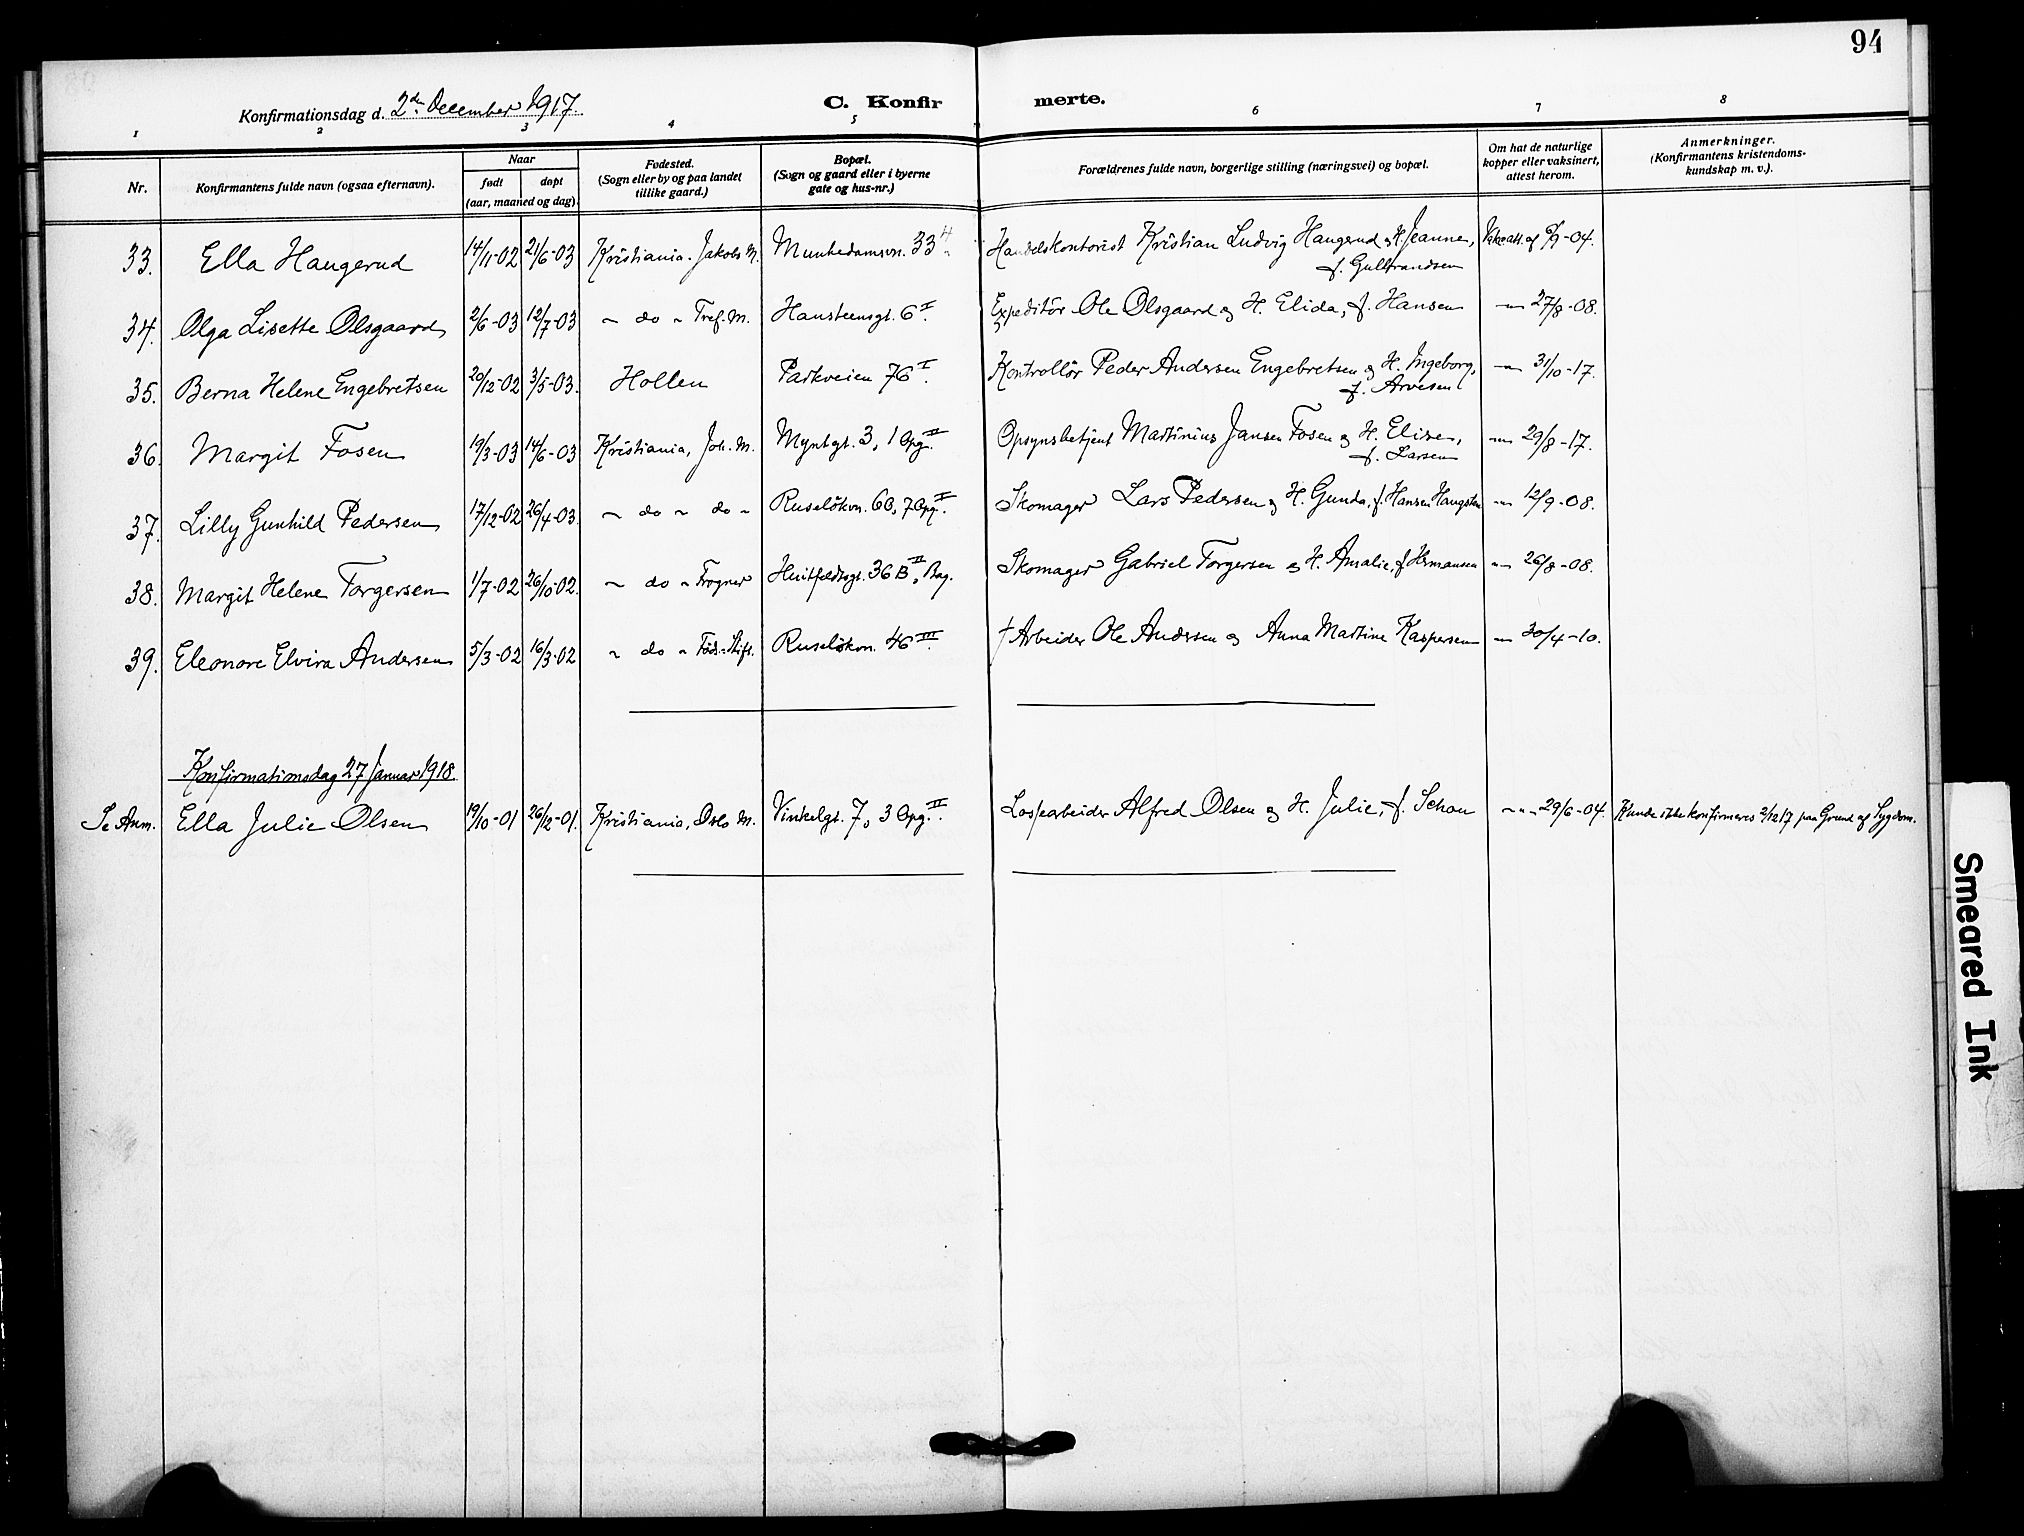 94
Konfirmationsdag d. 2den December 1917.
C. Konfir merte.
1 2 3 4 5 6 7 8
Nr.
Konfirmantens fulde navn (ogsaa efternavn).
Naar
født døpt
(aar, maaned og dag).
Fødested.
(Sogn eller by og paa landet
tillike gaard.)
Bopæl.
(Sogn og gaard eller i byerne
gate og hus-nr.)
Forældrenes fulde navn, borgerlige stilling (næringsvei) og bopæl.
Om hat de naturlige
kopper eller vaksinert,
attest herom.
Anmerkninger.
(Konfirmantens kristendoms-
kundskap m. v.).
33. Ella Haugerud 14/11-02 21/6-03 Kristiania. Jakobs M. Munkedamsvn. 33 4 Handelskontorist Kristian Ludvig Haugerud og H. Jeanne, f. Gulbrandsen Vakc.att. af 6/9-04.
34. Olga Lisette Olsgaard 2/6-03 12/7-03 " do " Tref. M. Hansteensgt. 6 I. Expeditör Ole Olsgaard og H. Elida, f. Hansen -"- 27/8-08.
35. Berna Helene Engebretsen 20/12-02 3/5-03. Hollen Parkveien 76 I. Kontrollör Peder Andersen Engebretsen og H. Ingeborg, f. Arvesen -"- 31/10-17.
36. Margit Fosen 19/3-03 14/6-03 Kristiania, Joh. M. Myntgt. 3, 1 Opg. II Opsynsbetjent Martinius Jansen Fosen og H. Elise, f. Larsen -"- 29/8-17.
37. Lilly Gunhild Pedersen 17/12-02 26/4-03. " do " do " Ruselökvn. 60, 7 Opg. II. Skomager Lars Pedersen og H. Gunda, f. Hansen Haugsten -"- 12/9-08.
38. Margit Helene Torgersen 1/7-02 26/10-02. " do " Frogner Huitfeldtsgt. 36 B II, Bag. Skomager Gabriel Torgersen og H. Amalie, f. Hermansen -"- 26/8-08.
39. Eleonore Elvira Andersen 5/3-02 16/3-02 " do " Föds.-Stift. Ruselökvn. 46 III. † Arbeider Ole Andersen og Anna Martine Kaspersen -"- 30/4-10.
Konfirmationsdag 27 Januar 1918.
Se Anm. Ella Julie Olsen 19/10-01 26/12-01. Kristiania, Oslo M. Vinkelgt. 7, 3 Opg. II. Lossearbeider Alfred Olsen og H. Julie, f. Schou -"- 29/6-04. Kunde ikke konfirmeres 2/12 17 paa Grund af Sygdom.
Smeared Ink